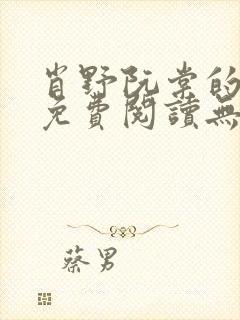 肖野阮棠的
免費閱讀無
蔡男